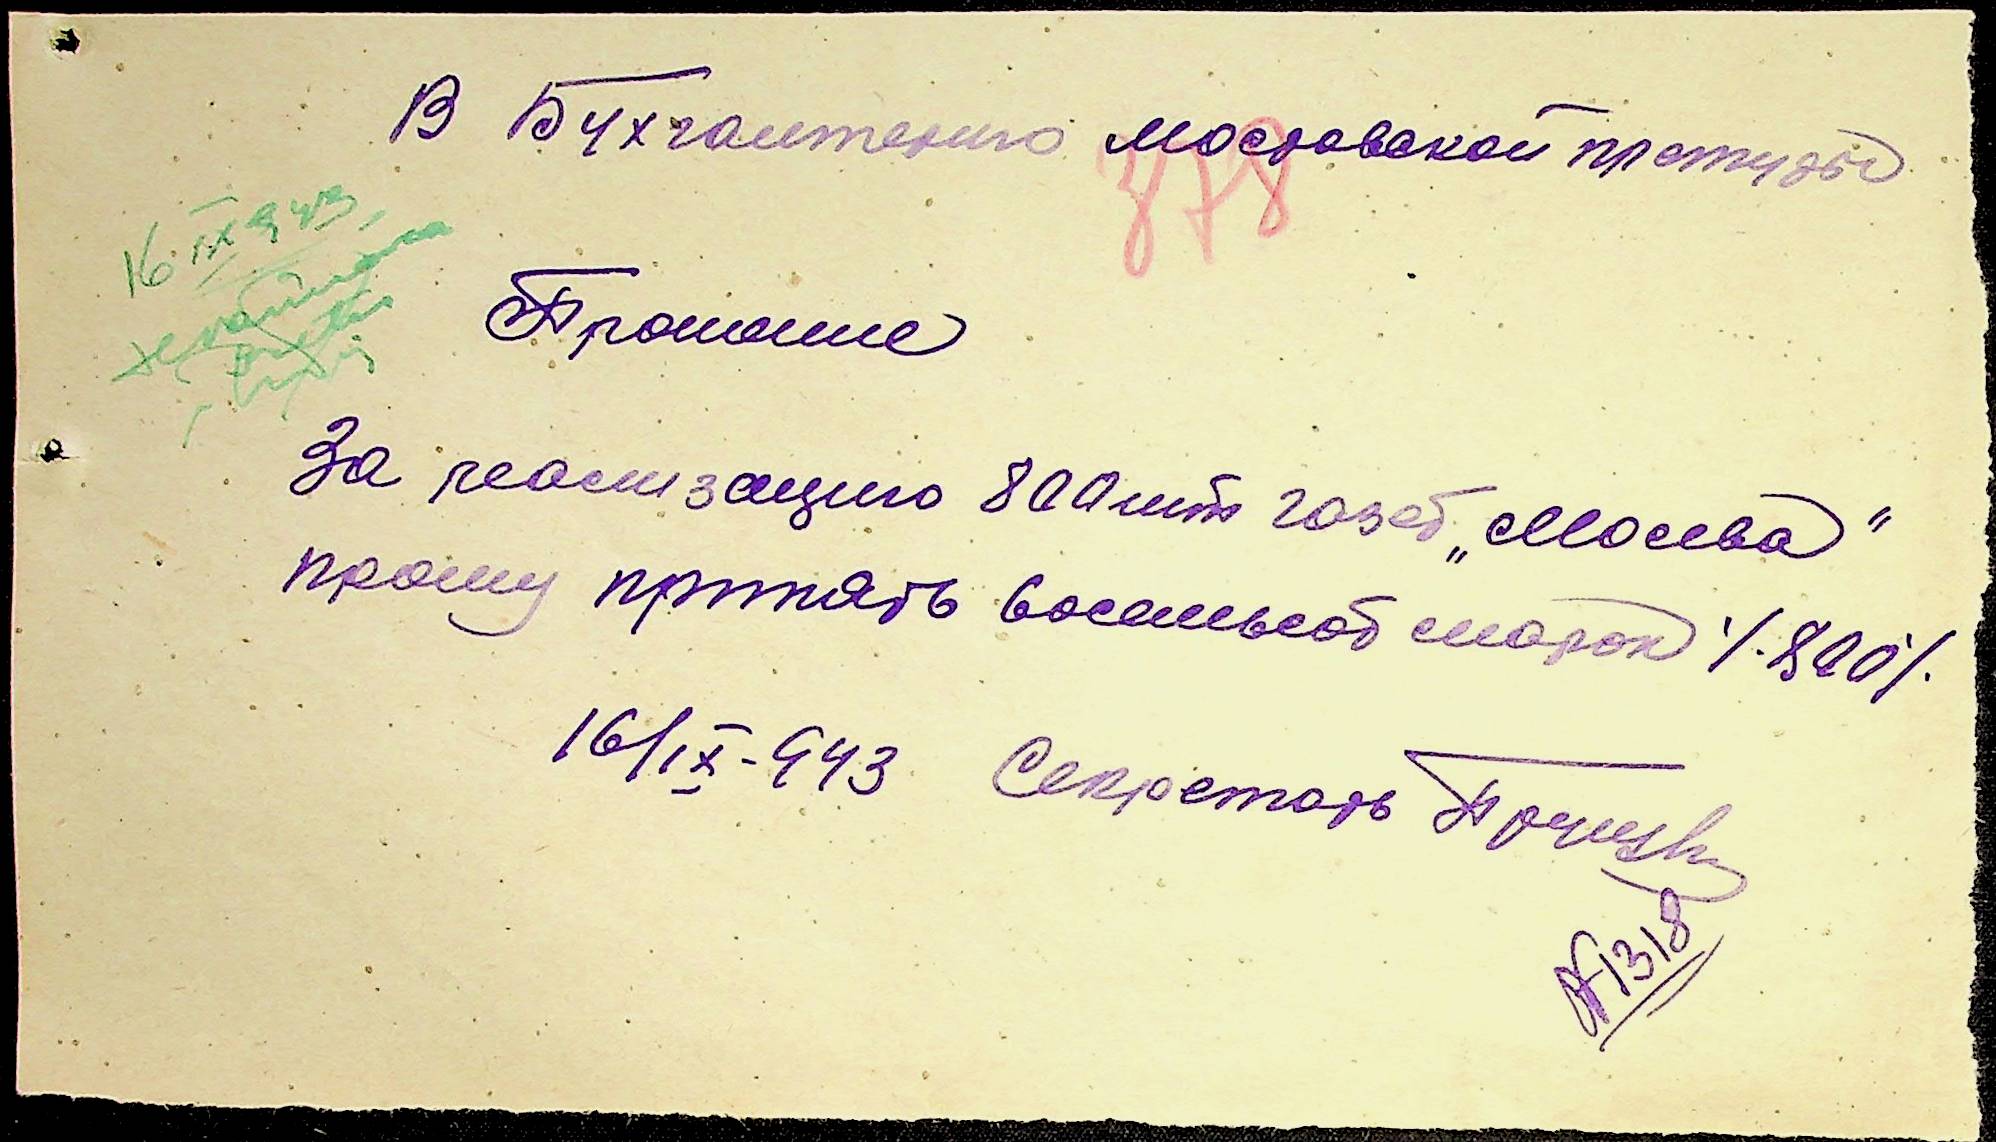 В Бухгалтерию Мостовской претуры
378
16 IX 943
Прошение
За реализацию 800 шт газет „Москва"
прошу принять восемьсот марок /·800/·
16/IX - 943 Секретарь
№ 1318